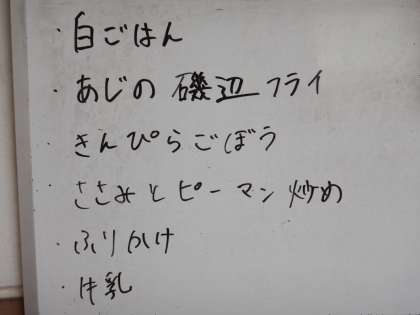 ・白ごはん
・あじの磯辺フライ
・きんぴらごぼう
・ささみとピーマン炒め
・ふりかけ
・牛乳